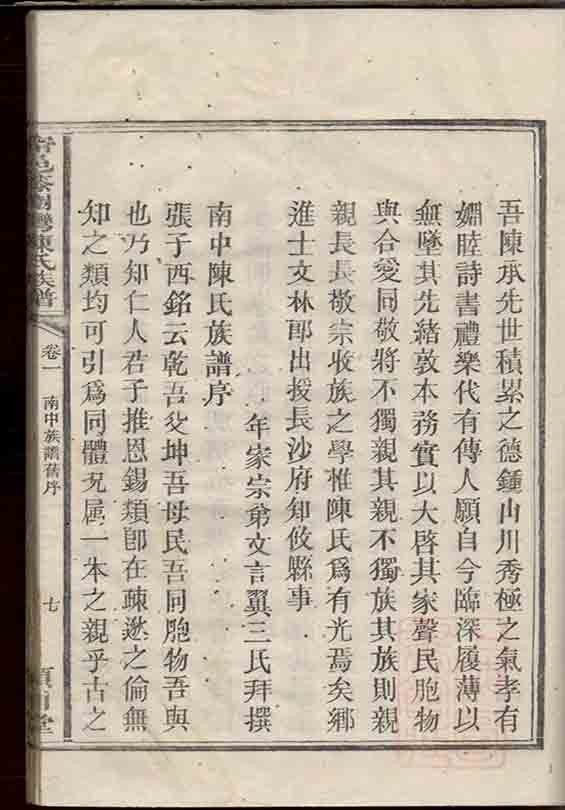 吾陳承先世積累之德鍾山川秀極之氣孝有
婣睦詩書禮樂代有傳人願自今臨深履薄以
無墜其先緒敦本務實以大啓其家聲民胞物
與合愛同敬將不獨親其親不獨族其族則親
親長長敬宗收族之學惟陳氏爲有光焉矣鄉
進士文林郎出授長沙府知攸縣事
年家宗弟文言翼三氏拜撰
南中陳氏族譜序
張子西銘云乾吾父坤吾母民吾同胞物吾與
也乃知仁人君子推恩錫類卽在疎逖之倫無
知之類均可引爲同體况属一本之親乎古之
邑
陳氏族譜
卷一
南中族譜舊序
七
堂